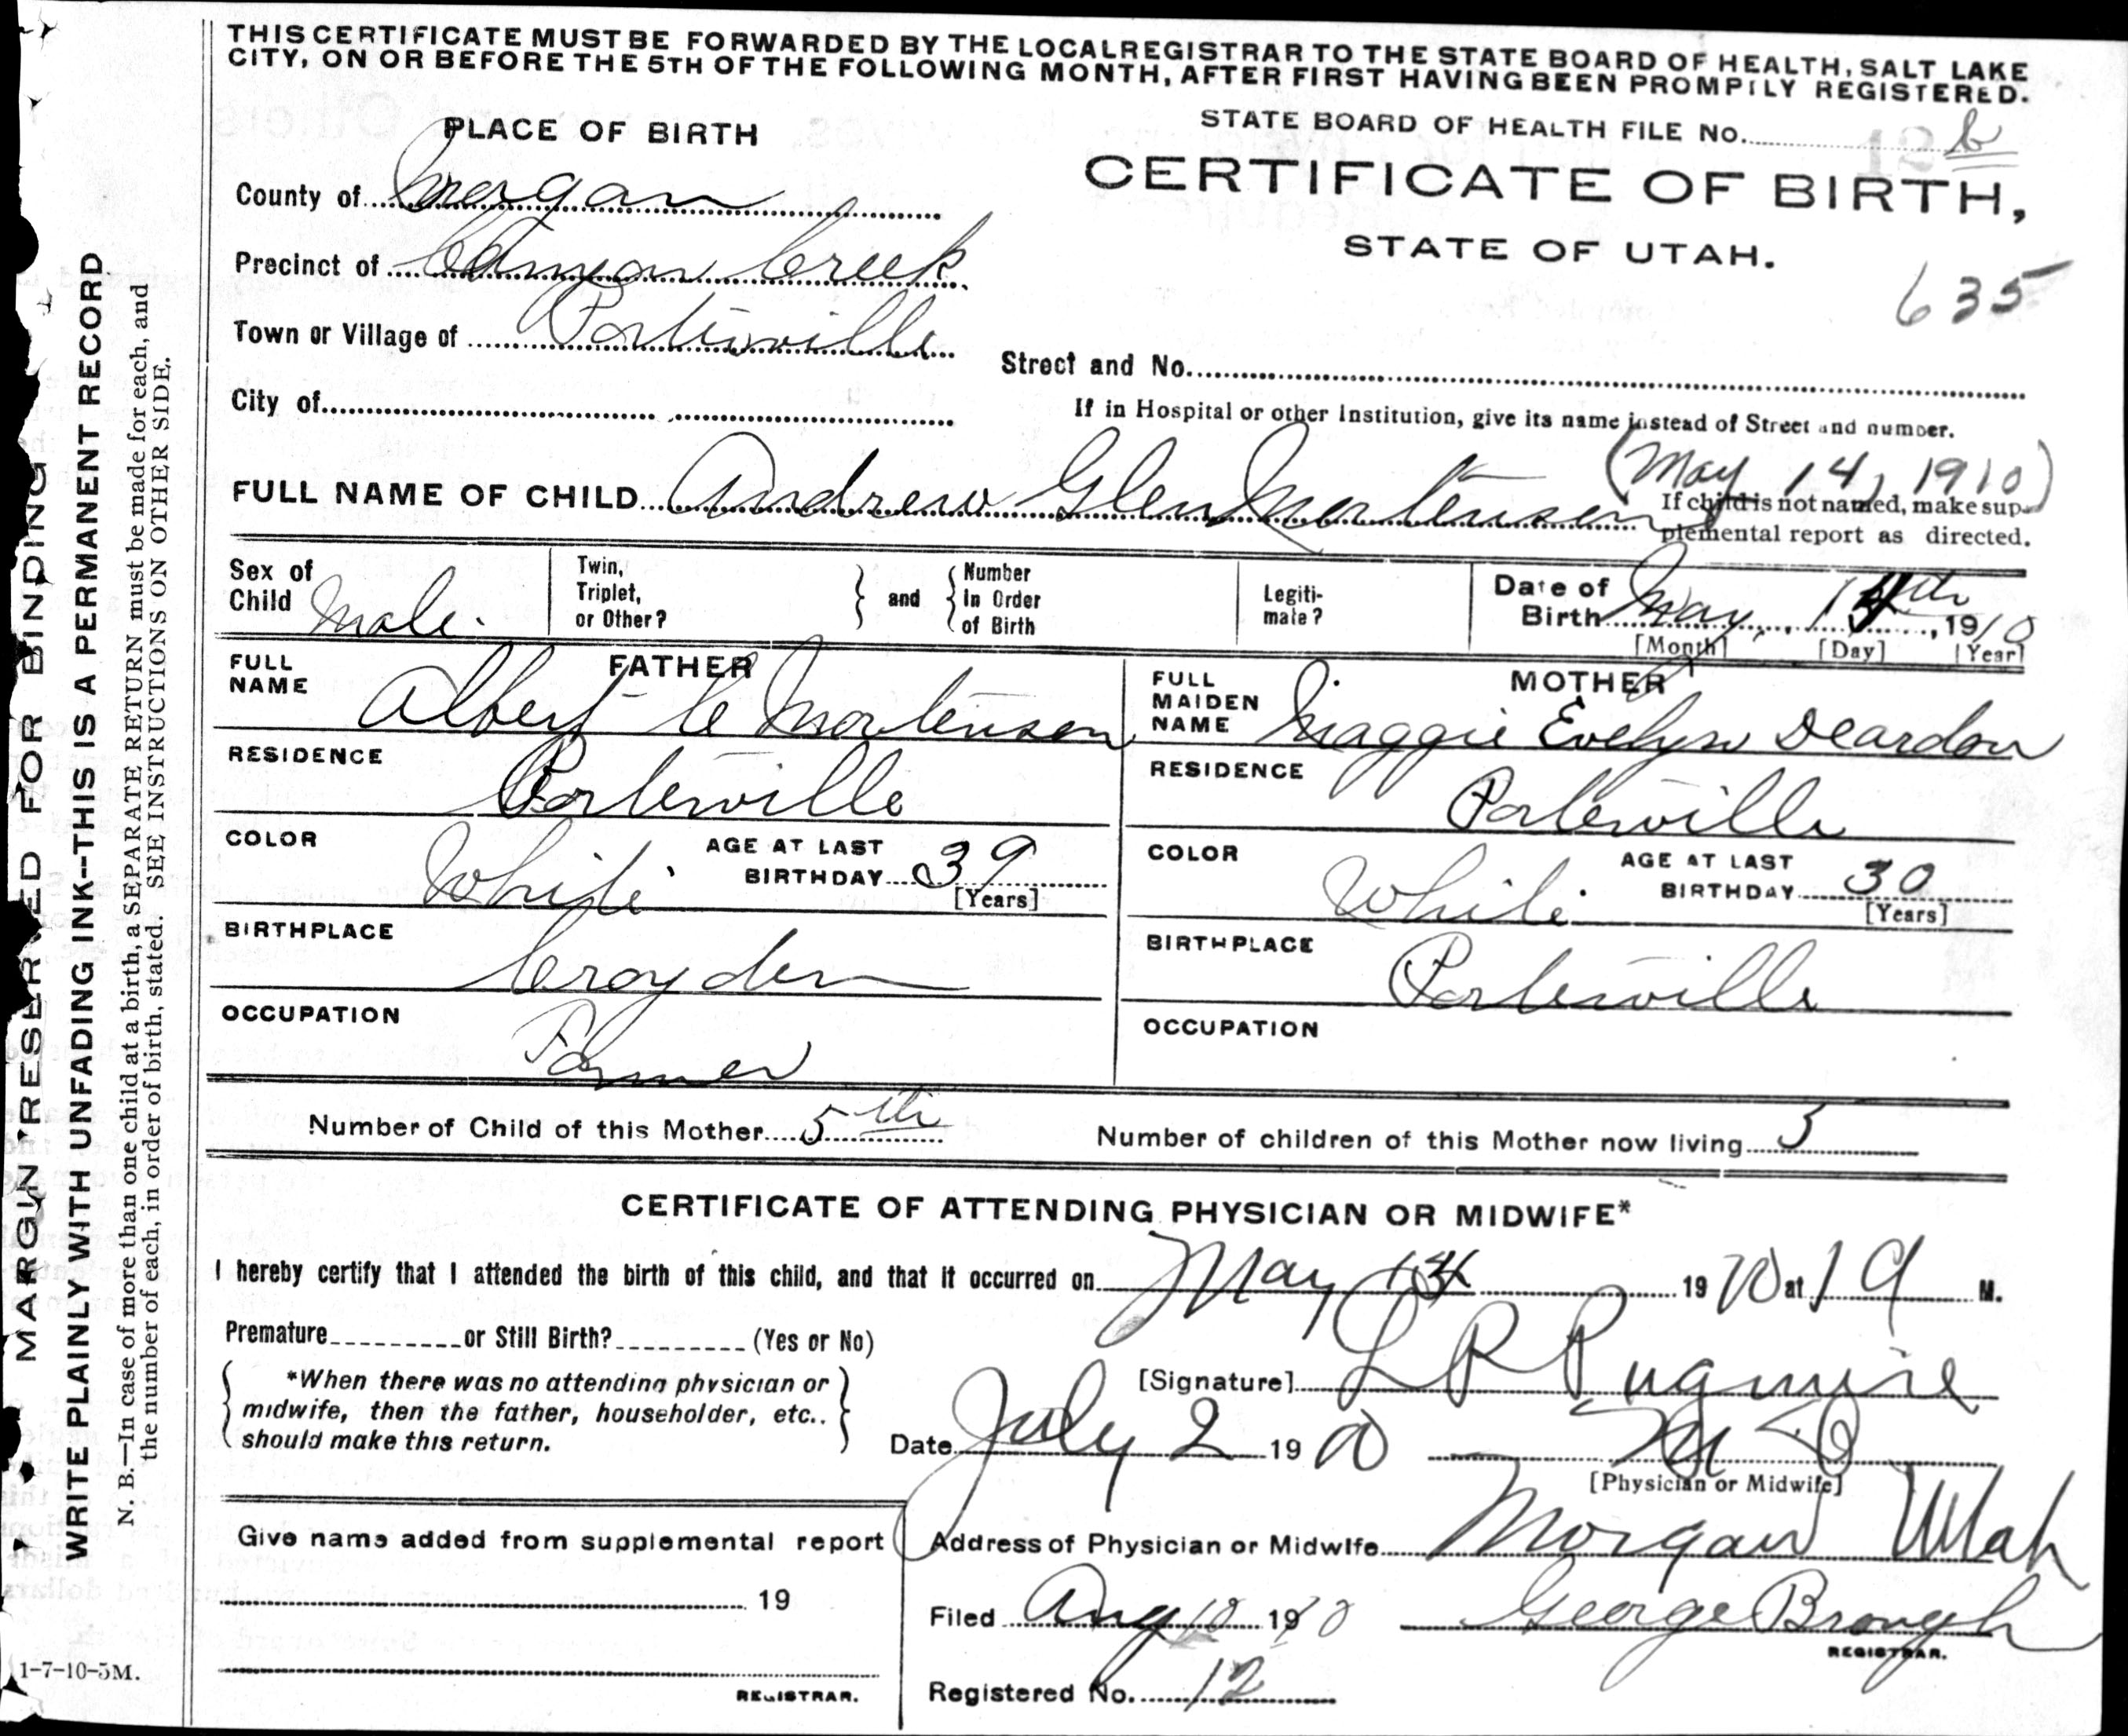 THIS CERTIFICATE MUST BE FORWARDED BY THE LOCAL REGISTRAR TO THE STATE BOARD OF HEALTH, SALT LAKE
CITY, ON OR BEFORE THE 5TH OF THE FOLLOWING MONTH, AFTER FIRST HAVING BEEN PROMPTLY REGISTERED.
PLACE OF BIRTH
STATE BOARD OF HEALTH FILE No.
CERTIFICATE OF BIRTH,
STATE OF UTAH.
635
County of Morgan
Precinct of Canyon Creek
Town or Village of Porterville
Street and No.
City of
If in Hospital or other Institution, give its name instead of Street and number.
(May 14, 1910)
FULL NAME OF CHILD Andrew Glen Mortensen
If child is not named, make sup-
plemental report as directed.
Sex of Child Male.
Twin, Triplet, or Other?
and
Number In Order of Birth
Legiti-mate?
Date of Birth May 14th, 1910
[Month] [Day] [Year]
FATHER
FULL NAME Albert C Mortensen
RESIDENCE Porterville
COLOR White
AGE AT LAST BIRTHDAY 39
[Years]
BIRTHPLACE Croyden
OCCUPATION Farmer
MOTHER
FULL MAIDEN NAME Maggie Evelyn Deardon
RESIDENCE Porterville
COLOR White
AGE AT LAST BIRTHDAY 30
[Years]
BIRTHPLACE Porterville
OCCUPATION
Number of Child of this Mother 5th
Number of children of this Mother now living 5
CERTIFICATE OF ATTENDING PHYSICIAN OR MIDWIFE*
I hereby certify that I attended the birth of this child, and that it occurred on May 14 1910 at 1 a M.
Premature or Still Birth? (Yes or No)
[Signature] L R Pugmire
*When there was no attending physician or
midwife, then the father, householder, etc.,
should make this return.
Date July 2 1910
M D
[Physician or Midwife]
Give name added from supplemental report
19
REGISTRAR.
Address of Physician or Midwife Morgan Utah
Filed Aug 10 1910
George Brough
REGISTRAR.
Registered No. 12
MARGIN RESERVED FOR BINDING
WRITE PLAINLY WITH UNFADING INK--THIS IS A PERMANENT RECORD
N. B.—In case of more than one child at a birth, a SEPARATE RETURN must be made for each, and
the number of each, in order of birth, stated. SEE INSTRUCTIONS ON OTHER SIDE.
1-7-10-5M.